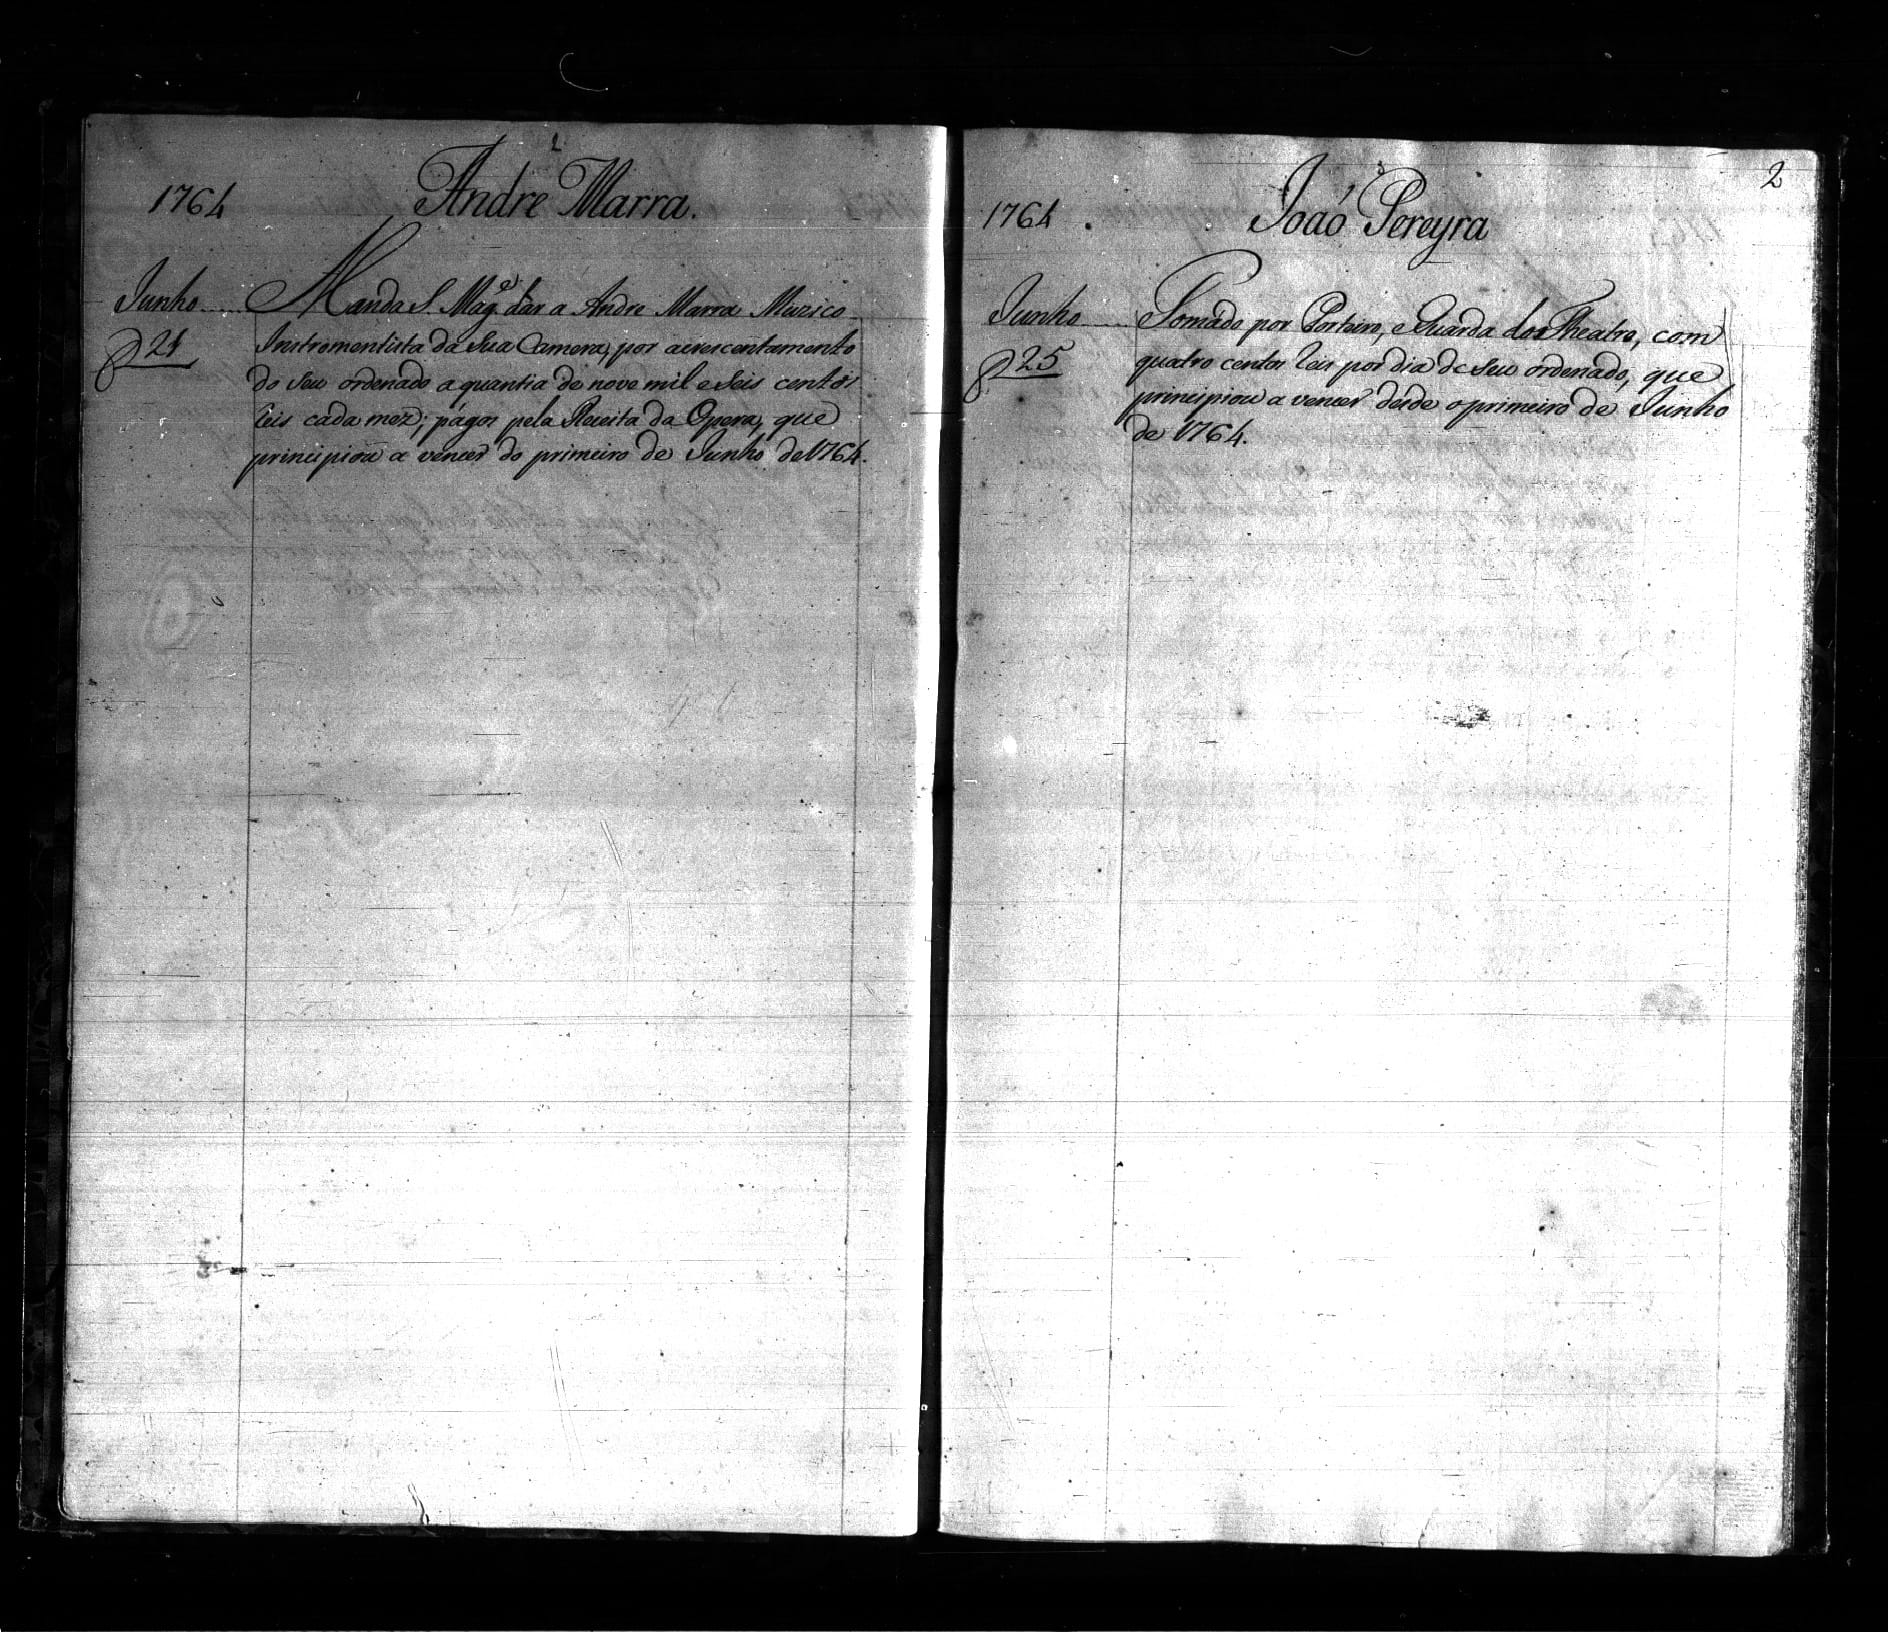 2
1764 Andre Marra.
Junho Manda S. Magᵉ dar a Andre Marra Muzico
21 Instromentista da Sua Camera, por acrescentamento
do seu ordenado a quantia de nove mil e seis centos
reis cada mez; págos pela Receita da Opera, que
principiou a vencer do primeiro de Junho de 1764.
2
3
1764 Joaó Pereyra
Junho Tomado por Porteiro, e Guarda dos Theatro, com
25 quatro centos reis por dia de seu ordenado, que
principiou a vencer desde o primeiro de Junho
de 1764.